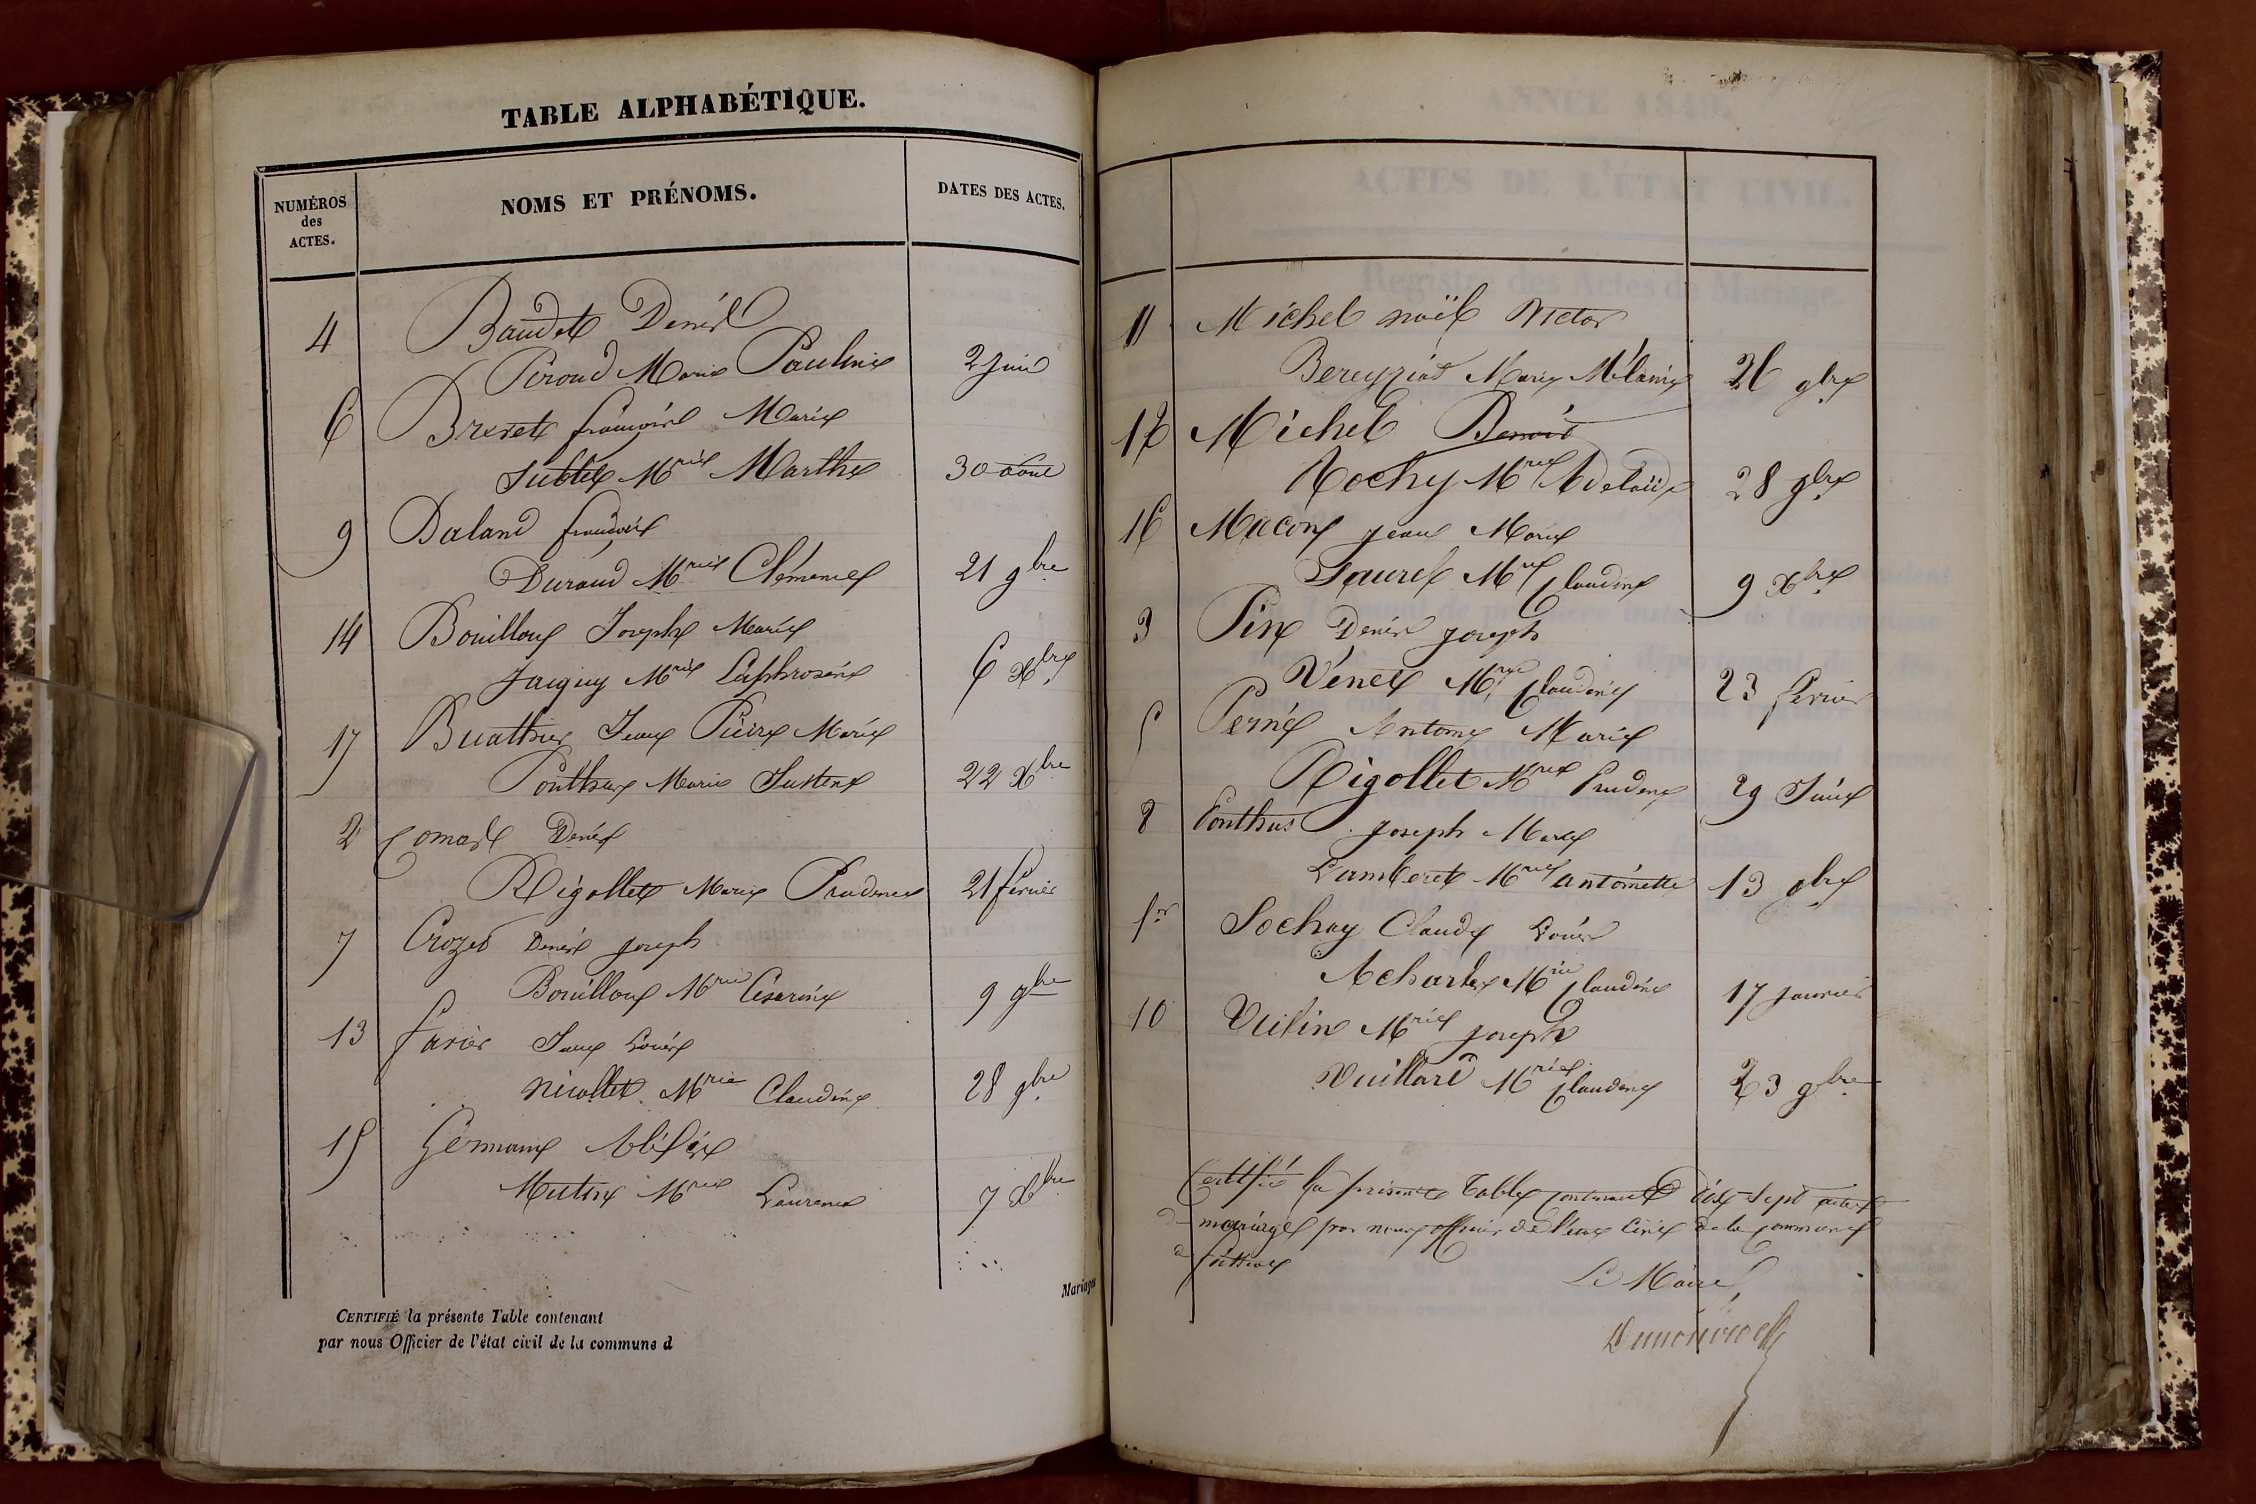 TABLE ALPHABÉTIQUE.
NUMÉROS
des
ACTES.
NOMS ET PRÉNOMS.
DATES DES ACTES.
4 Baudet Denis
Péroud Marie Pauline 2 Juin
6 Brevet françois Marie
Marie Marthe 30 aout
9 Daland françois
Durand Mrie Clémence 21 9bre
14 Bouilloux Joseph Marie
Jacquy Mrie 6 Xbre
17 Buathier Jean Pierre Marie
Ponthus Marie Justine 22 Xbre
2 Comas Denis
Rigollet Marie Prudence 21 février
7 Crozet Denis Joseph
Bouilloux Mrie Césarine 9 9bre
13 farier Jean Louis
Nicollet Mrie Claudine 28 9bre
15 Germain
Mrie Laurence 7 Xbre
Mariages
CERTIFIÉ la présente Table contenant
par nous Officier de l'état civil de la commune d
11 Michel Noël Victor
Bereyziat Marie Mélanie 26 9bre
12 Michel Benoit
Rochy Mrie Adelaïde 28 9bre
16 Macon Jean Marie
Faure Mrie Claudine 9 Xbre
3 Pin Denis Joseph
Venet Mrie Claudine 23 février
5 Antoine Marie
Rigollet Mrie Prudence 29 Juin
8 Ponthus Joseph Marie
Lamberet Mrie antoinette 13 9bre
1er Sochay Claude Louis
Acharles Mrie Claudine 17 janvier
10 Vulin Mrie Joseph
Vuillard Mrie Claudine 23 9bre
Certifié la présente Table contenant dix Sept actes
de mariages par nous officier de l'état Civil de la commune
de
Le Maire,